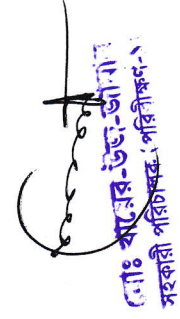 মোঃ খায়ের-উজ-জামান
সহকারী পরিচালক, পরিবীক্ষণ-১